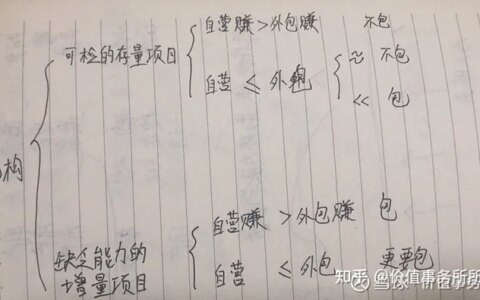 自营赚＞外包赚 不包
可检的存量项目
≈ 不包
自营 ≤ 外包
≪ 包
构
自营赚＞外包赚 包
缺乏能力的
增量项目
自营 ≤ 外包 更要包
知乎 @价值事务所所